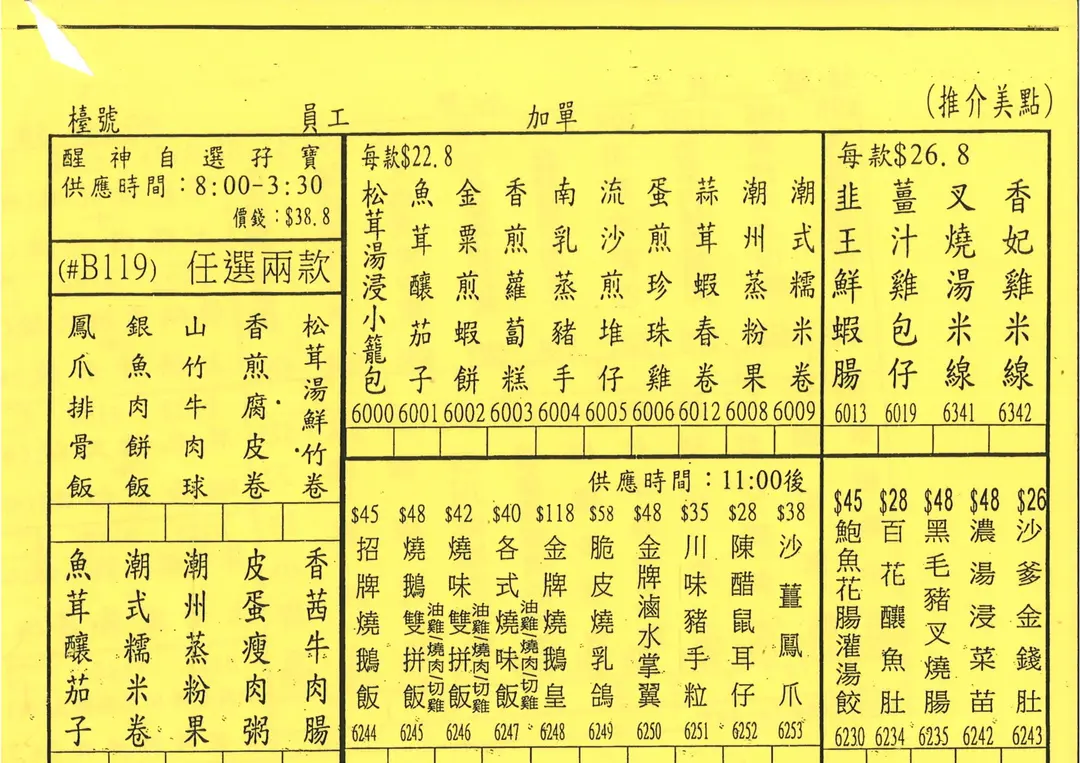 (推介美點)
檯號 員工 加單
醒神自選孖寶
供應時間：8:00-3:30
價錢：$38.8
(#B119) 任選兩款
鳳爪排骨飯
銀魚肉餅飯
山竹牛肉球
香煎腐皮卷
松茸湯鮮竹卷
魚茸釀茄子
潮式糯米卷
潮州蒸粉果
皮蛋瘦肉粥
香茜牛肉腸
每款$22.8
松茸湯浸小籠包 6000
魚茸釀茄子 6001
金粟煎蝦餅 6002
香煎蘿蔔糕 6003
南乳蒸豬手 6004
流沙煎堆仔 6005
蛋煎珍珠雞 6006
蒜茸蝦春卷 6012
潮州蒸粉果 6008
潮式糯米卷 6009
每款$26.8
韭王鮮蝦腸 6013
薑汁雞包仔 6019
叉燒湯米線 6341
香妃雞米線 6342
供應時間：11:00後
$45 招牌燒鵝飯 6244
$48 燒鵝雙拼飯 油雞/燒肉/切雞 6245
$42 燒味雙拼飯 油雞/燒肉/切雞 6246
$40 各式燒味飯 油雞/燒肉/切雞 6247
$118 金牌燒鵝皇 6248
$58 脆皮燒乳鴿 6249
$48 金牌滷水掌翼 6250
$35 川味豬手粒 6251
$28 陳醋鼠耳仔 6252
$38 沙薑鳳爪 6253
$45 鮑魚花腸灌湯餃 6230
$28 百花釀魚肚 6234
$48 黑毛豬叉燒腸 6235
$48 濃湯浸菜苗 6242
$26 沙爹金錢肚 6243